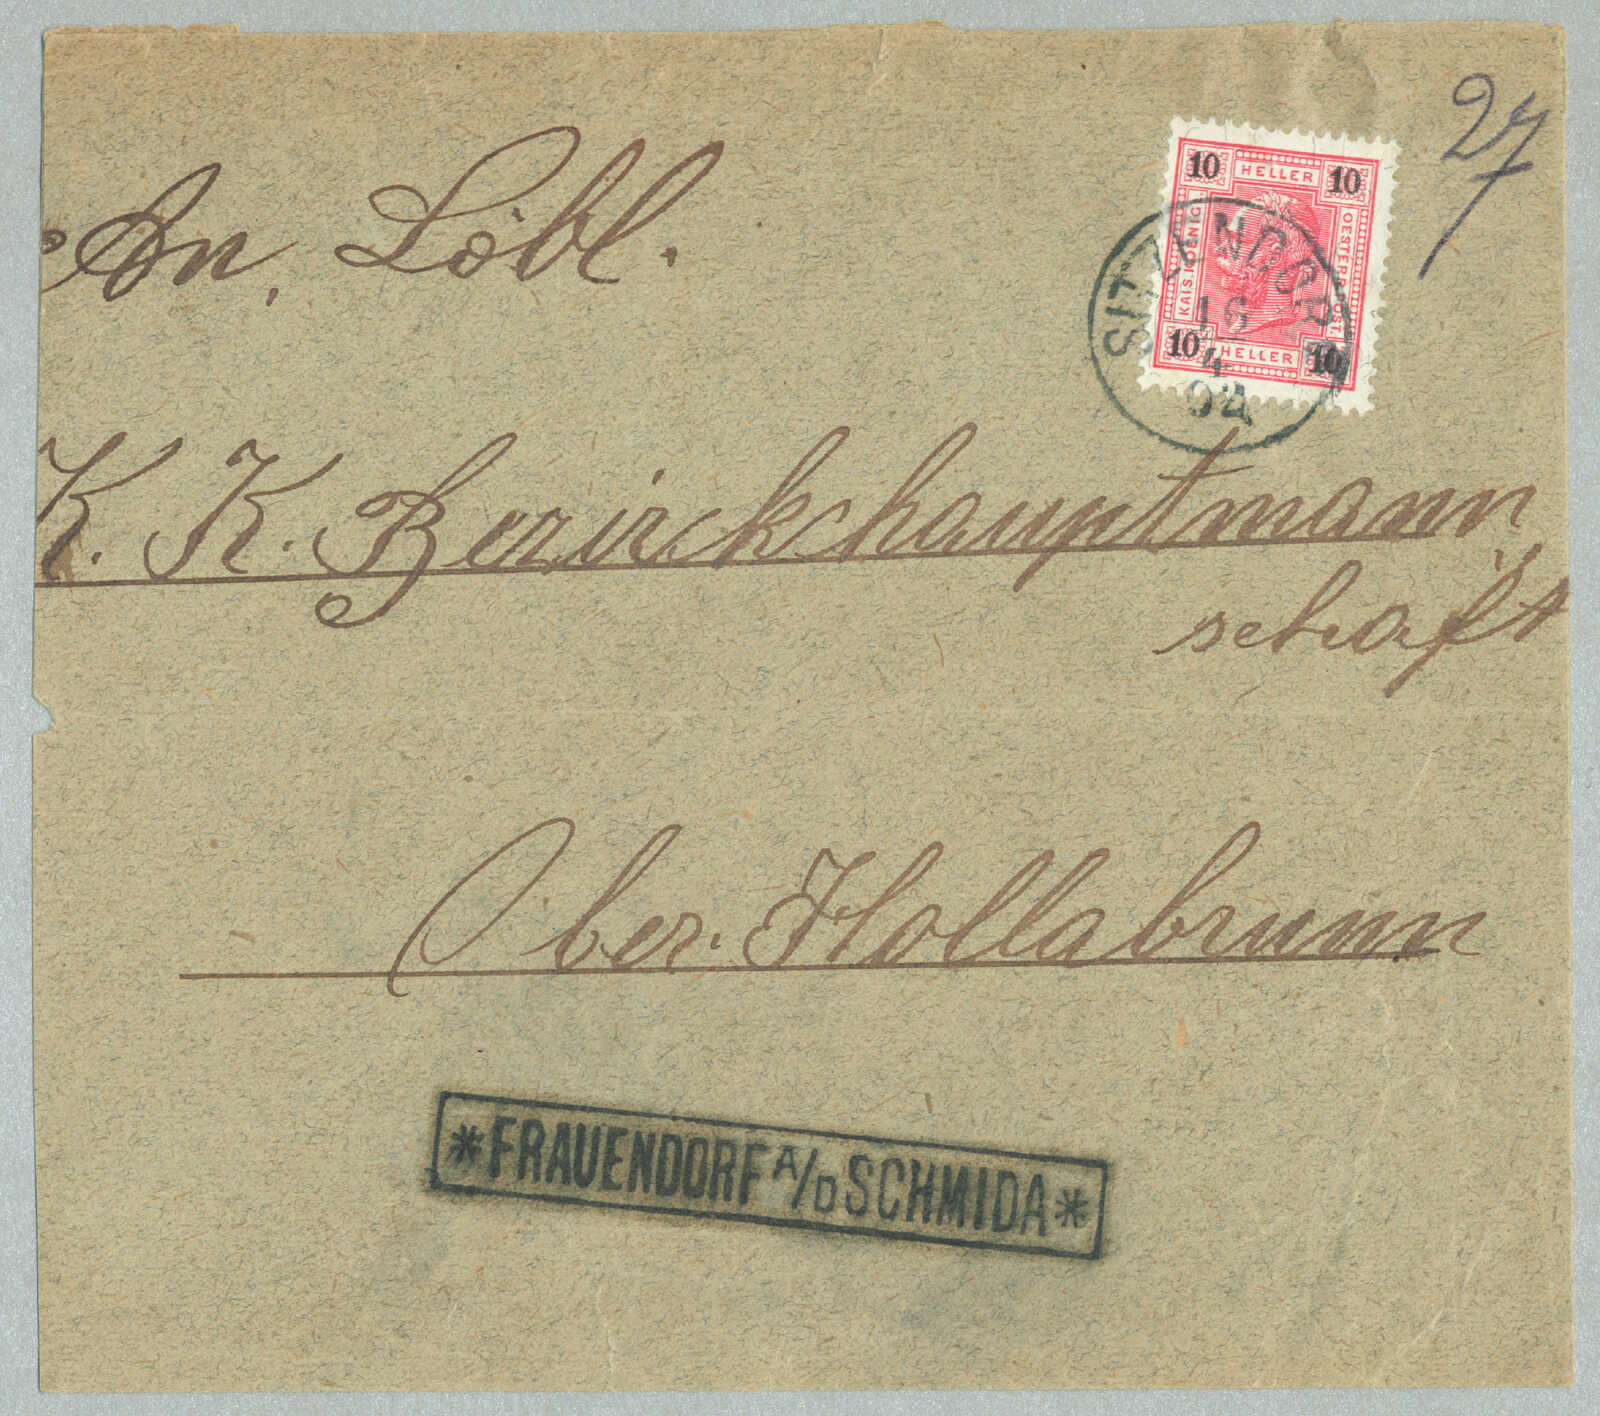 27
An Löbl.
10 HELLER 10
KAIS. KOENIGL. OESTERR. POST.
10 HELLER 10
SITZENDORF
16
4
02
K. K. Bezirckshauptmann
schaft
Ober-Hollabrunn
*FRAUENDORF A/D SCHMIDA*